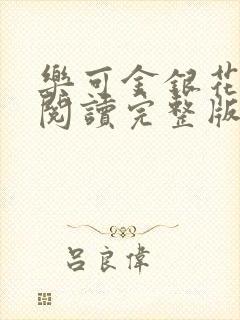 樂可金銀花
閱讀完整版
呂良偉